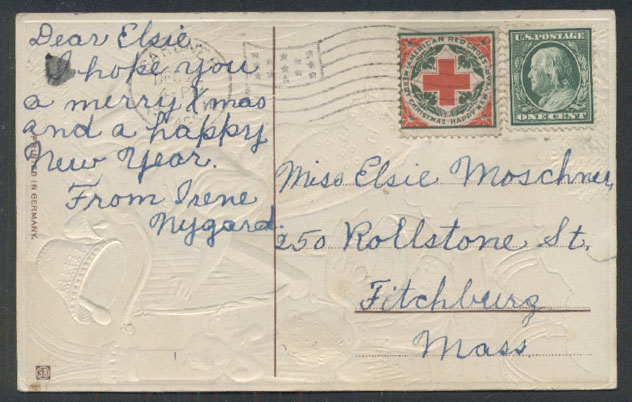 Dear Elsie
I hope you
a merry Xmas
and a happy
New Year.
From Irene
Nygard.
PRINTED IN GERMANY.
AMERICAN RED CROSS
MERRY CHRISTMAS · HAPPY NEW YEAR
U.S. POSTAGE
ONE CENT
Miss Elsie Moschner,
250 Rollstone St.
Fitchburg
Mass.